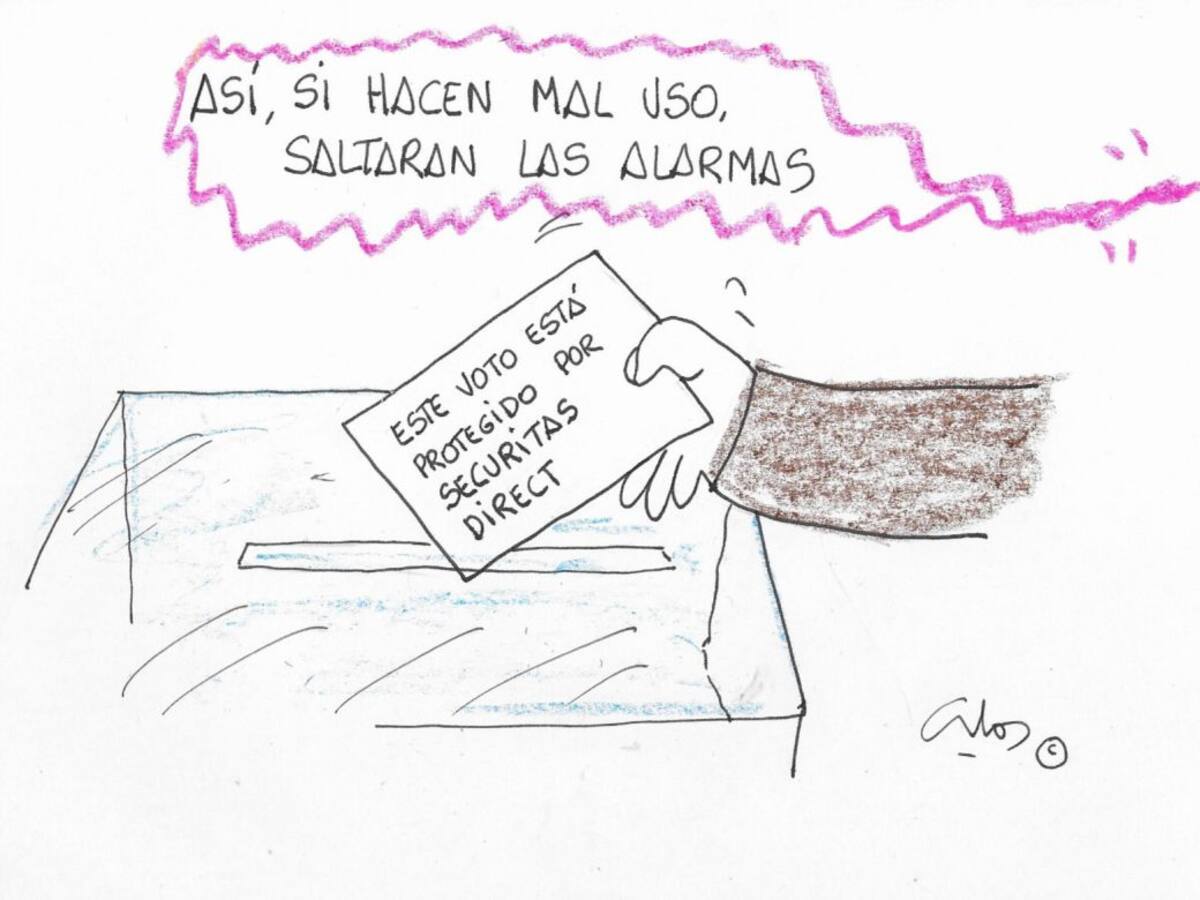 ASÍ, Si HACEN MAL USO,
SALTARAN LAS ALARMAS
ESTE VOTO ESTÁ
PROTEGIDO POR
SECURITAS
DiRECT
©